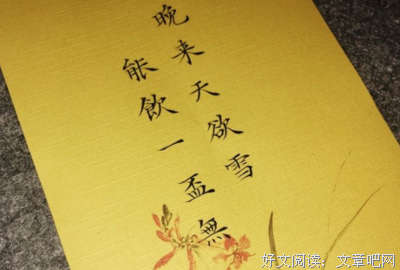 晚来天欲雪
能飲一盃無
好文阅读：文章吧网